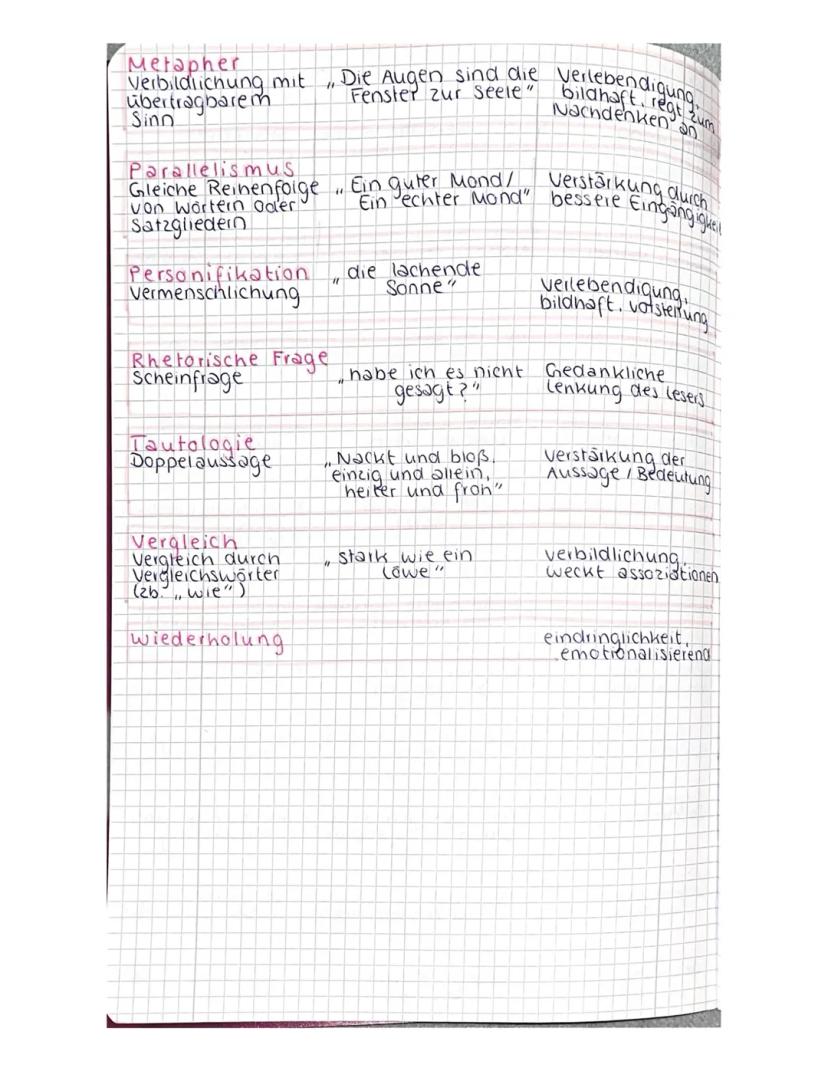 Metapher
Verbildlichung mit „Die Augen sind die Verlebendigung,
übertragbarem Fenster zur Seele" bildhaft, regt zum
Sinn Nachdenken an
Parallelismus
Gleiche Reihenfolge „Ein guter Mond/ Verstärkung durch
von Wörtern oder Ein echter Mond" bessere Eingängigkeit
Satzgliedern
Personifikation „die lachende
Vermenschlichung Sonne" Verlebendigung,
bildhaft, Vorstellung
Rhetorische Frage
Scheinfrage „habe ich es nicht Gedankliche
gesagt?" Lenkung des Lesers
Tautologie
Doppelaussage „Nackt und bloß, Verstärkung der
einzig und allein, Aussage / Bedeutung
heiter und froh"
Vergleich
Vergleich durch „stark wie ein Verbildlichung,
Vergleichswörter Löwe" weckt assoziationen
(zb. „wie")
Wiederholung eindringlichkeit,
emotionalisierend